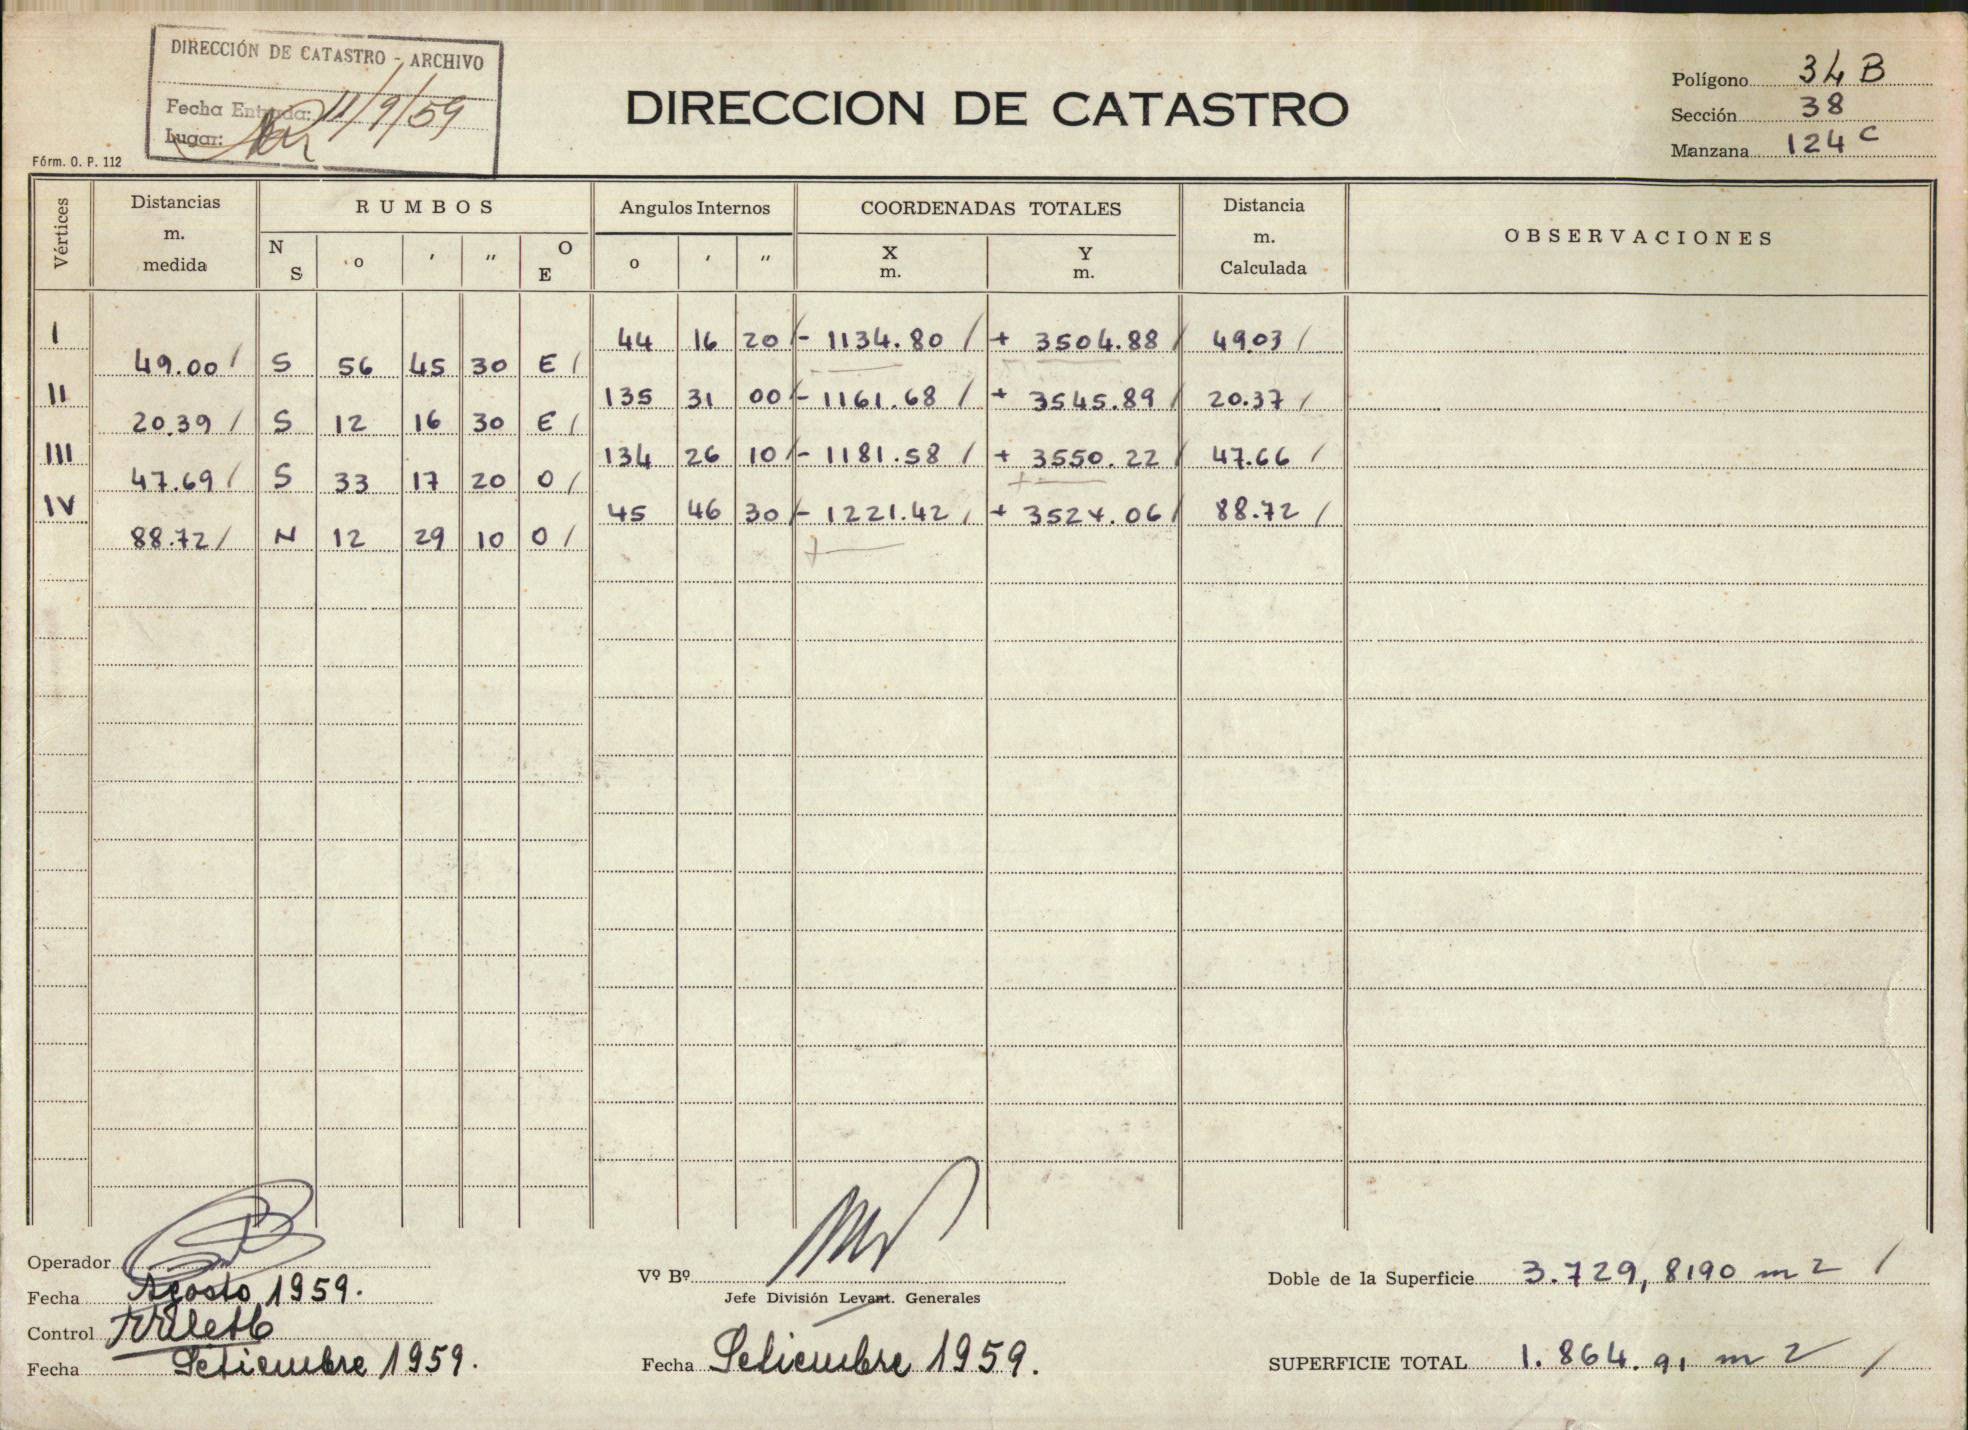 DIRECCIÓN DE CATASTRO - ARCHIVO
Fecha Entrada: 11/9/59
Lugar:
Fórm. O. P. 112
DIRECCION DE CATASTRO
Polígono 34 B
Sección 38
Manzana 124 C
Vértices
Distancias m. medida
RUMBOS
N S
o ′ ″
O E
Angulos Internos
o ′ ″
COORDENADAS TOTALES
X m.
Y m.
Distancia m. Calculada
OBSERVACIONES
I 44 16 20 / - 1134.80 / + 3504.88 / 49.03 /
49.00 / S 56 45 30 E /
II 135 31 00 / - 1161.68 / + 3545.89 / 20.37 /
20.39 / S 12 16 30 E /
III 134 26 10 / - 1181.58 / + 3550.22 / 47.66 /
47.69 / S 33 17 20 O /
IV 45 46 30 / - 1221.42 / + 3524.06 / 88.72 /
88.72 / N 12 29 10 O /
Operador
Fecha Agosto 1959.
Control
Fecha Setiembre 1959.
Vº Bº
Jefe División Levant. Generales
Fecha Setiembre 1959.
Doble de la Superficie 3.729,8190 m2 /
SUPERFICIE TOTAL 1.864.91 m2 /